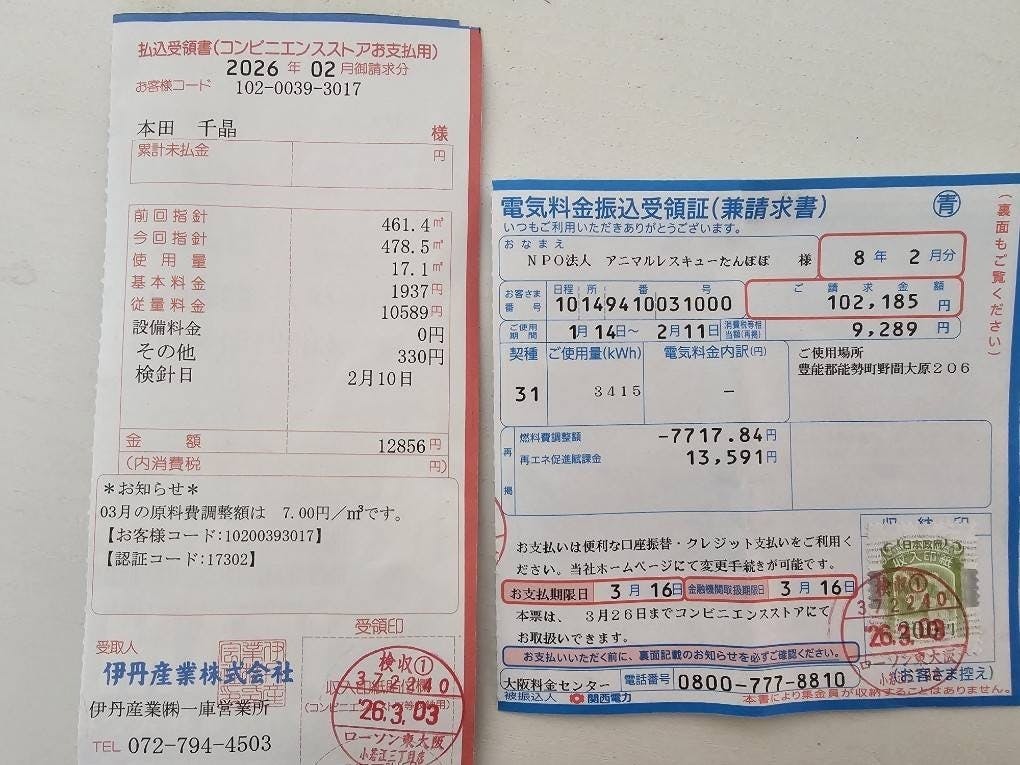 払込受領書(コンビニエンスストアお支払用)
2026 年 02 月御請求分
お客様コード 102-0039-3017
本田 千晶 様
累計未払金 円
前回指針 461.4㎥
今回指針 478.5㎥
使用量 17.1㎥
基本料金 1937円
従量料金 10589円
設備料金 0円
その他 330円
検針日 2月10日
金額 12856円
(内消費税 円)
*お知らせ*
03月の原料費調整額は 7.00円/㎥です。
【お客様コード:10200393017】
【認証コード:17302】
受取人
伊丹産業株式会社
伊丹産業㈱一庫営業所
TEL 072-794-4503
受領印
検収①
372240
26.3.03
ローソン東大阪
小若江三丁目店
電気料金振込受領証(兼請求書)
青
いつもご利用いただきありがとうございます。
(裏面もご覧ください)
おなまえ
NPO法人 アニマルレスキューたんぽぽ 様
8 年 2 月分
お客さま番号
日程 所 番 号
10149410031000
ご請求金額
102,185 円
ご使用期間
1月14日~ 2月11日
消費税等相当額(再掲)
9,289 円
契種 ご使用量(kWh) 電気料金内訳(円)
31 3415 −
ご使用場所
豊能郡能勢町野間大原206
再掲
燃料費調整額 -7717.84円
再エネ促進賦課金 13,591円
収納印
お支払いは便利な口座振替・クレジット支払いをご利用く
ださい。当社ホームページにて変更手続きが可能です。
お支払期限日 3月16日 金融機関取扱期限日 3月16日
本票は、3月26日までコンビニエンスストアにて
お取扱いできます。
お支払いいただく前に、裏面記載のお知らせを必ずご確認ください。
大阪料金センター 電話番号 0800-777-8810
被振込人 関西電力
日本政府
収入印紙
検収①
372240
26.3.03
ローソン東大阪
(お客さま控え)
本書により集金員が収納することはありません。